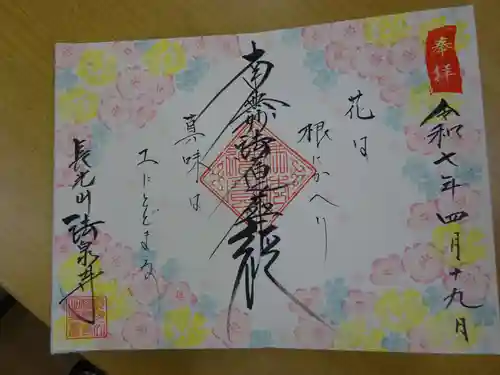 奉拝
令和七年四月十九日
花は
根にかへり
南無妙法蓮華経
真味は
土にとどまる
長光山
妙泉寺